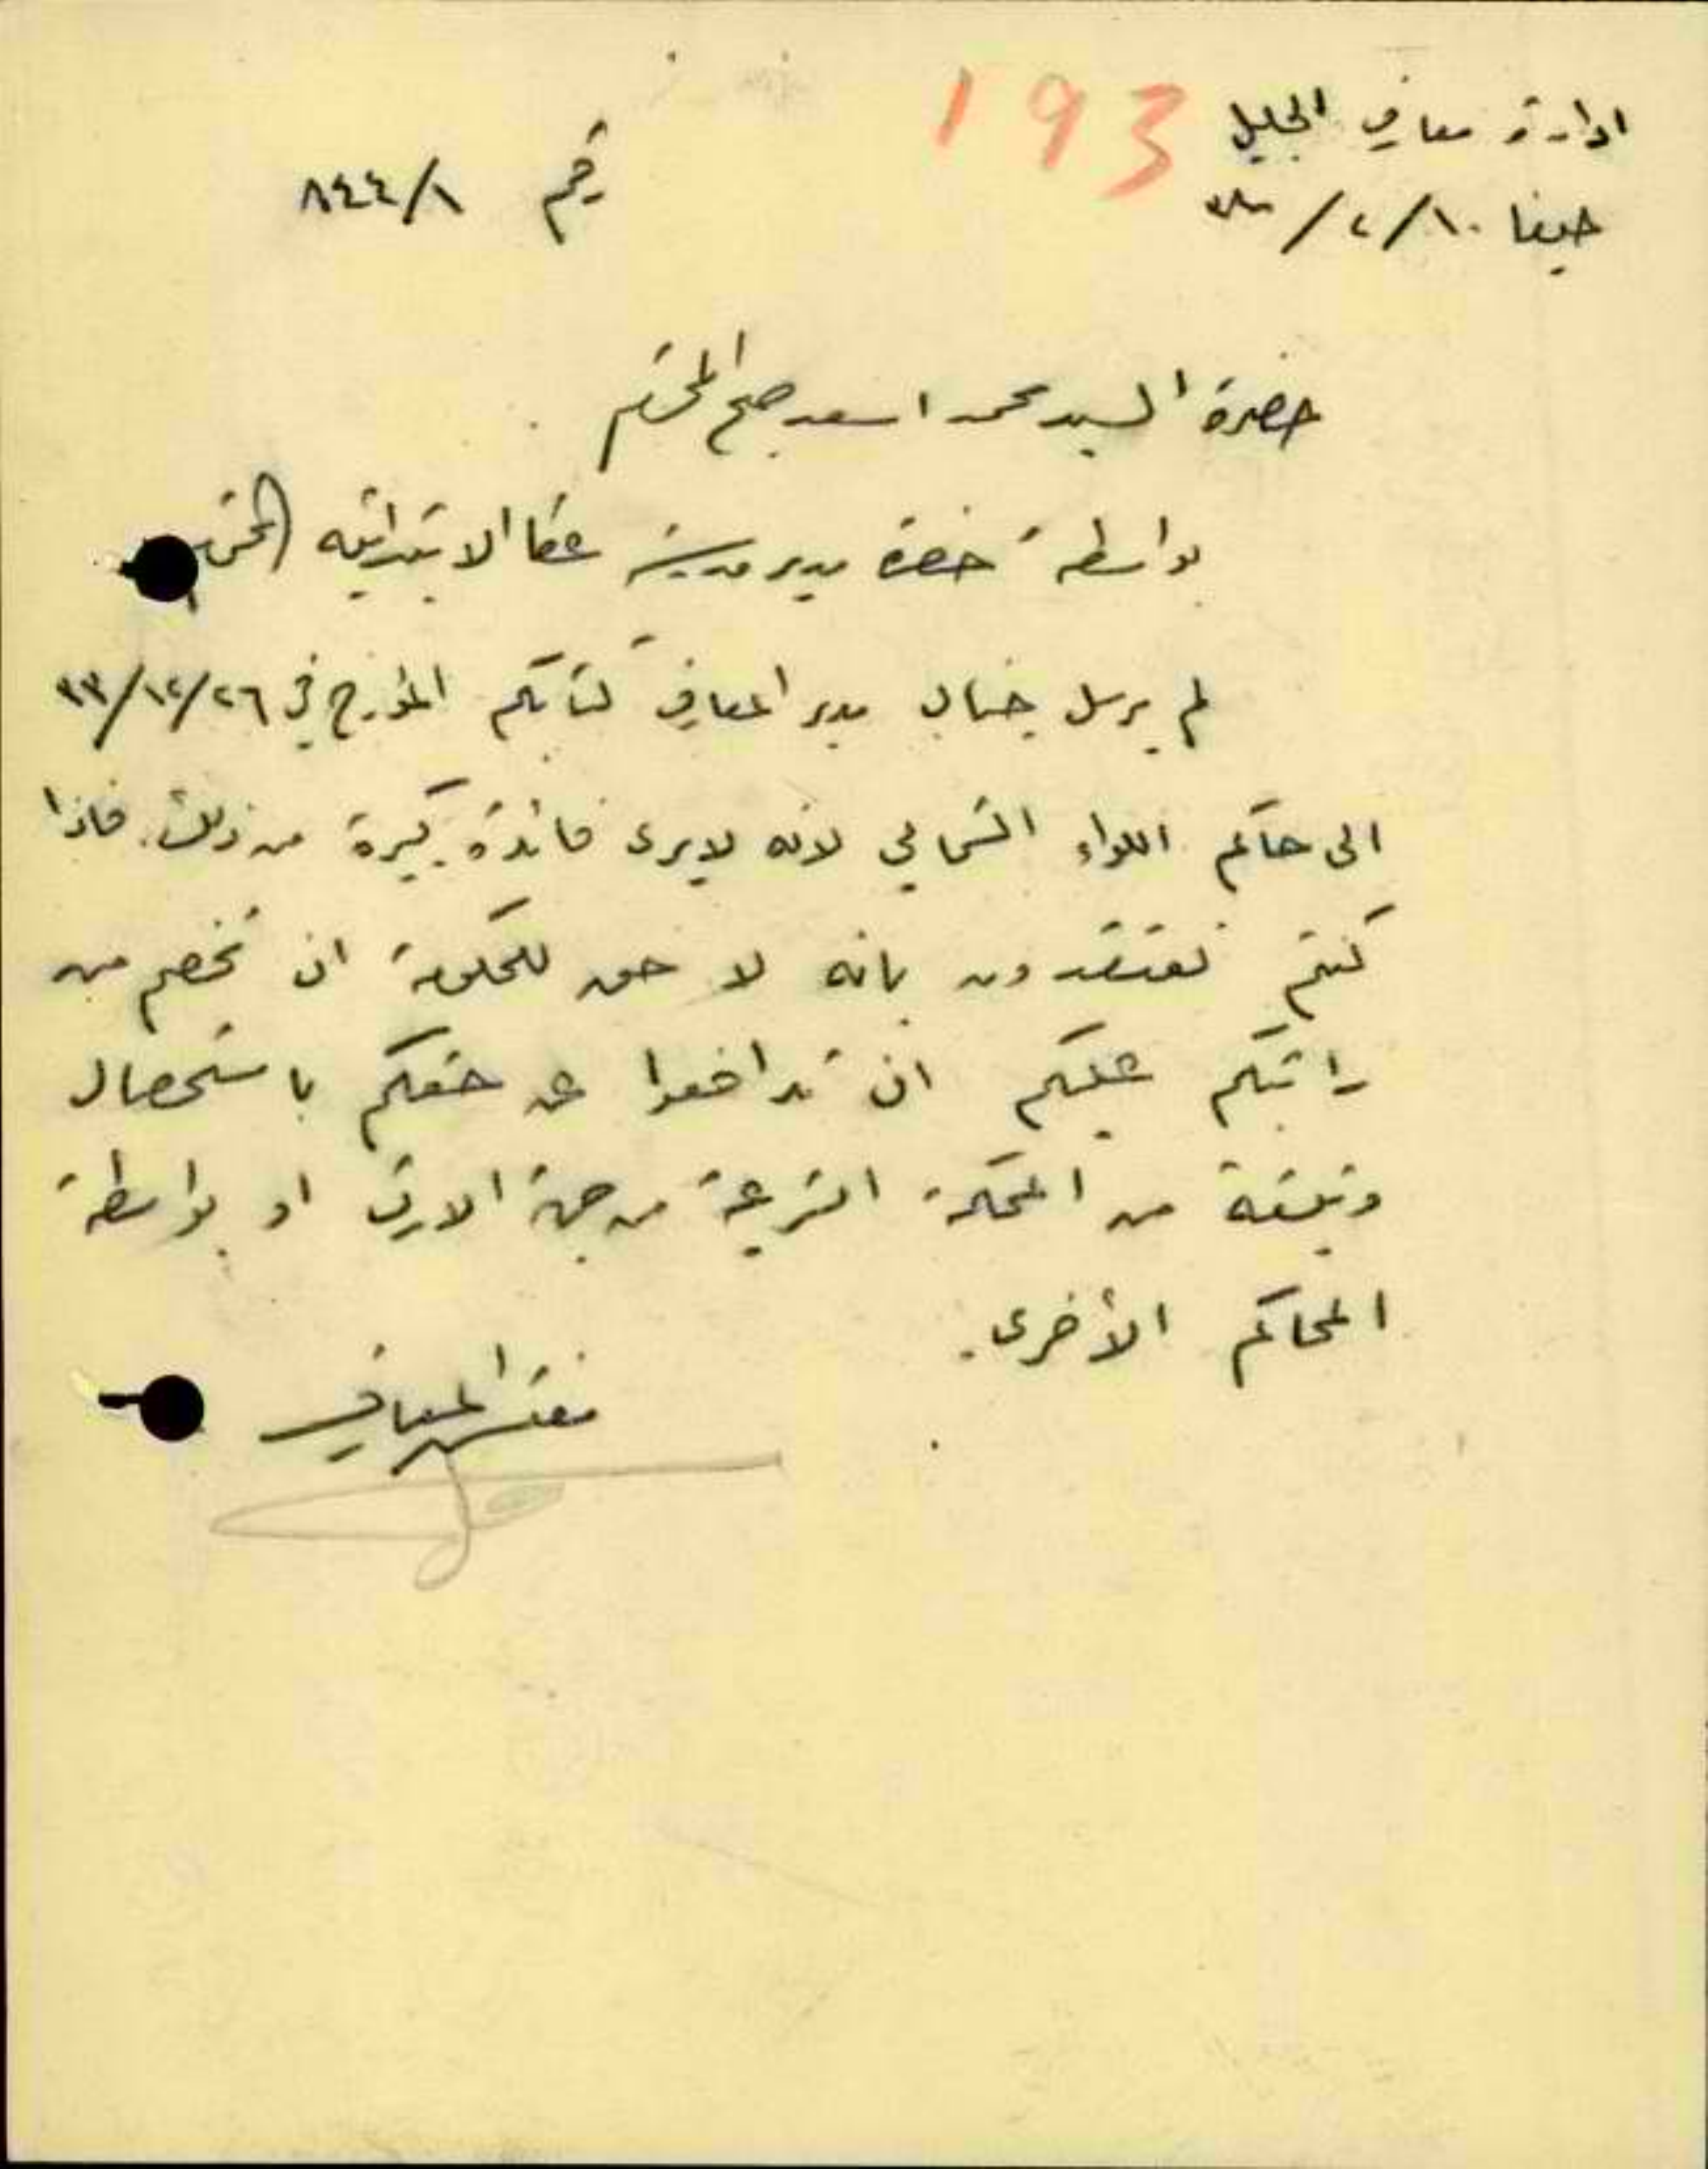 193
ادارة معارف الجليل
حيفا ١٠/٢/
رقم ٨٤٤/١
حضرة السيد محمد اسعد صلح المحترم
بواسطة حضرة مدير مدرسة عكا الابتدائيه المحترم
لم يرسل جناب مدير المعارف كتابكم المؤرخ في ٢٦/١٢/٣٣
الى حاكم اللواء الشمالي لانه لا يرى فائدة كبيرة من ذلك. فاذا
كنتم تعتقدون بانه لا حق للحكومة ان تخصم من
راتبكم عليكم ان تدافعوا عن حقكم باستحصال
وثيقة من المحكمة الشرعية من جهة الارث او بواسطة
المحاكم الأخرى.
مفتش المعارف